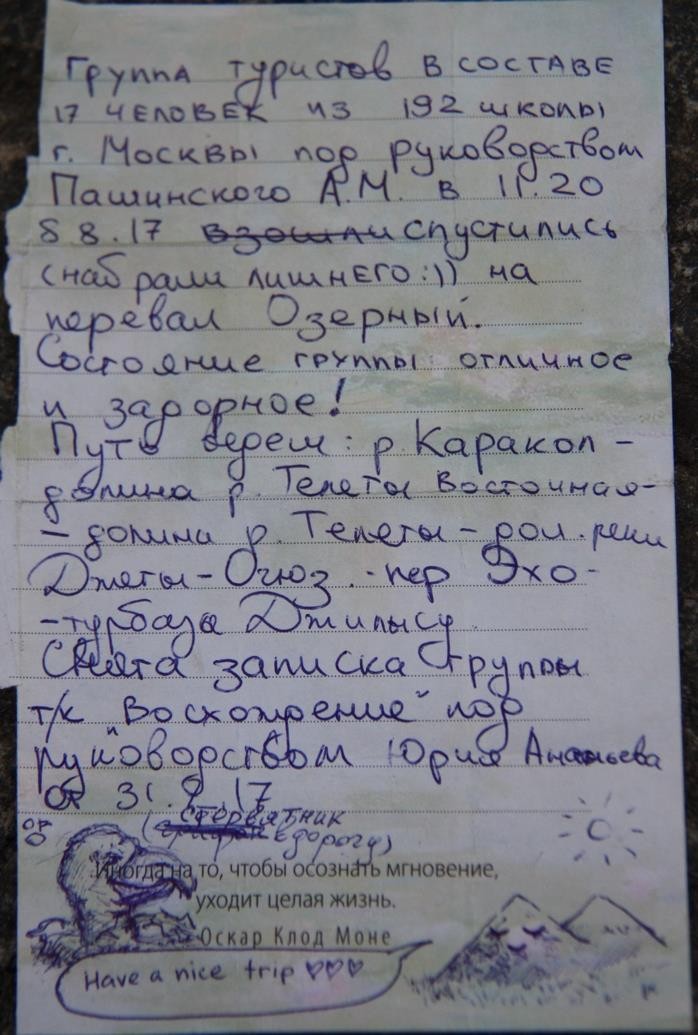 Группа туристов в составе
17 человек из 192 школы
г. Москвы под руководством
Пашинского А.М. в 11.20
8 8.17 взошли спустились
(набрали лишнего:)) на
перевал Озерный.
Состояние группы отличное
и задорное!
Путь держим: р. Каракол -
долина р. Телеты Восточная-
- долина р. Телеты - дол. реки
Джеты-Огюз - пер Эхо-
-турбаза Джилысу
Снята записка группы
т/к "Восхождение" под
руководством Юрия Ананьева
от 31.7.17
(стервятник
в дорогу)
Иногда на то, чтобы осознать мгновение,
уходит целая жизнь.
Оскар Клод Моне
Have a nice trip ♡♡♡